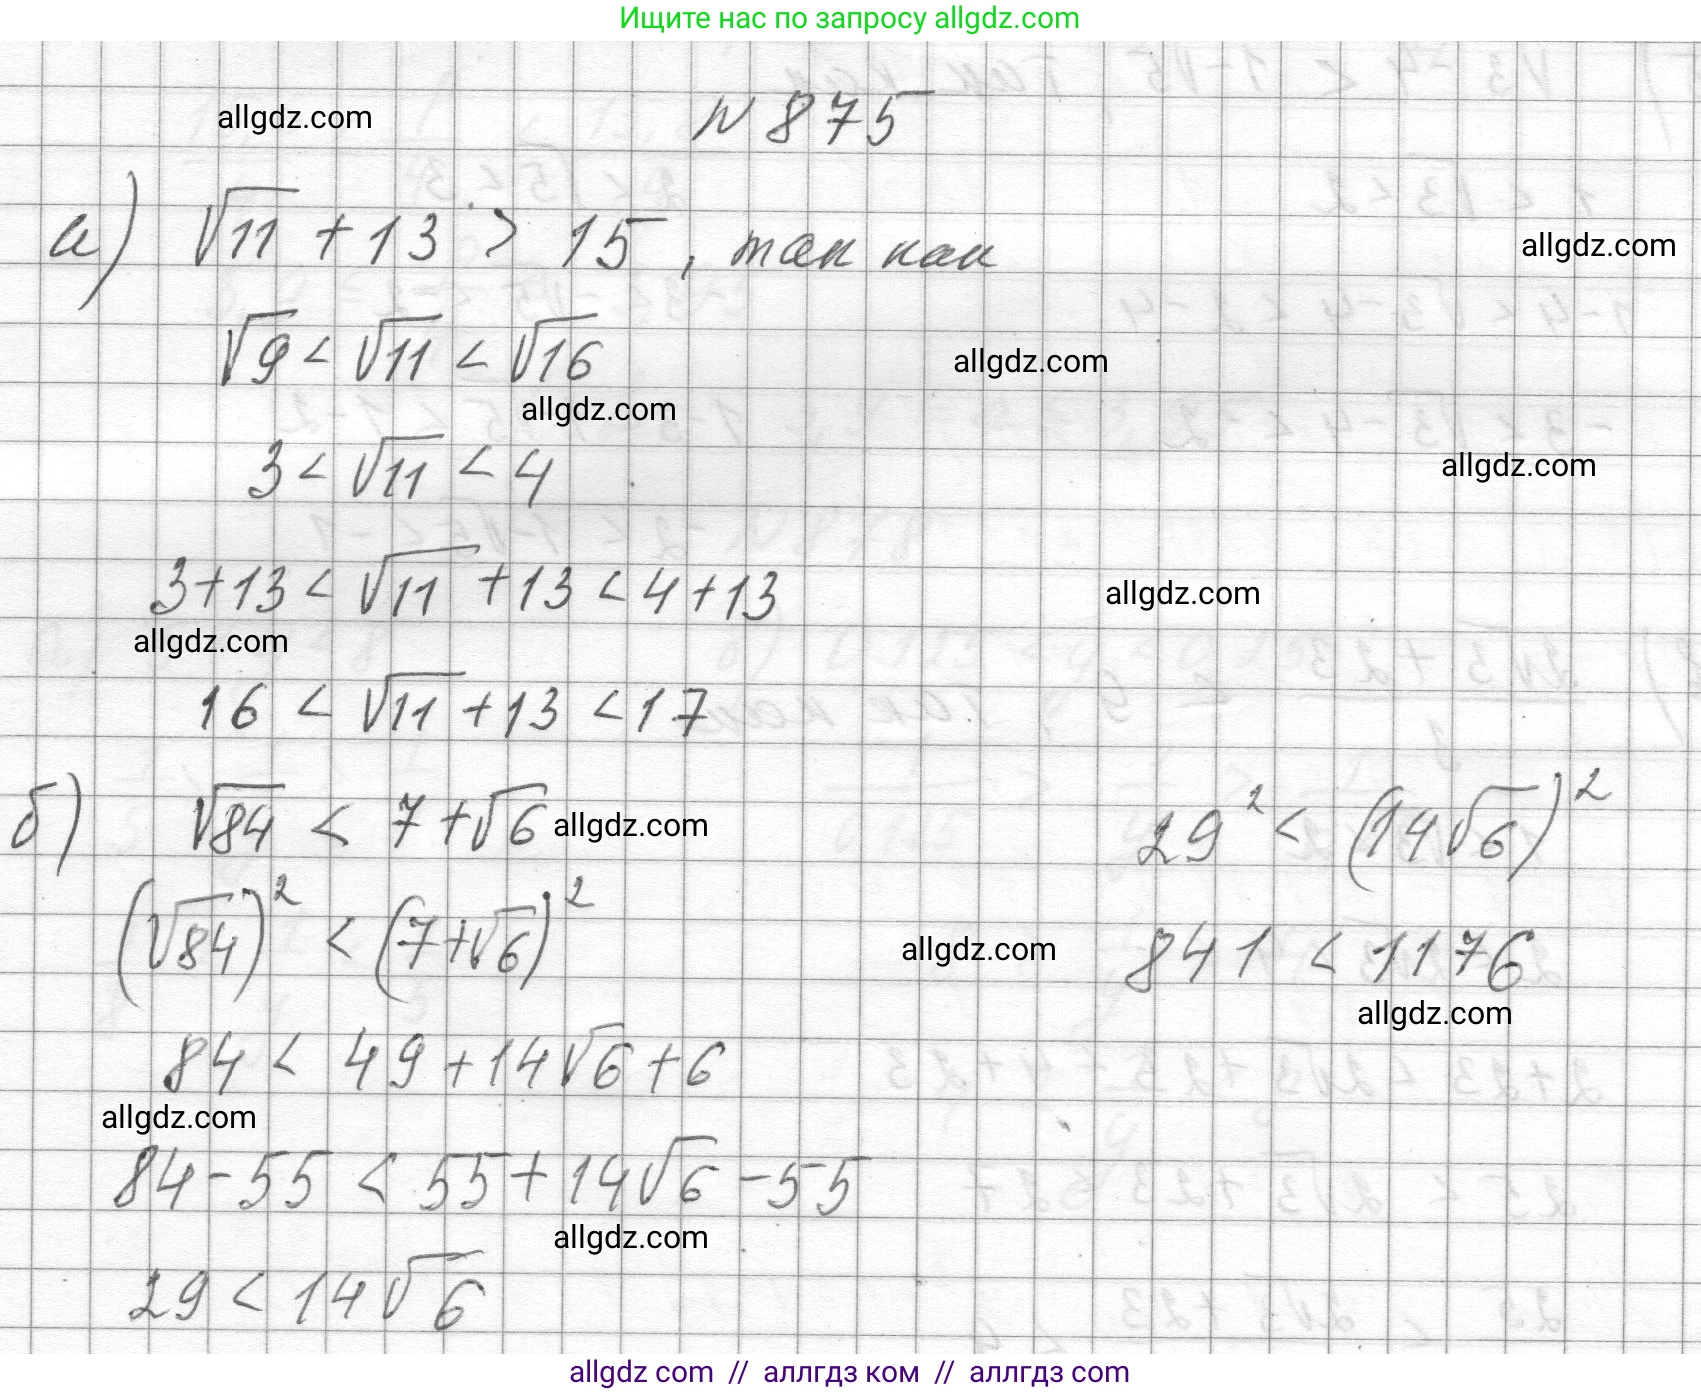 Ищите нас по запросу allgdz.com
allgdz.com
N 875
а) √11 + 13 > 15, так как
allgdz.com
√9 < √11 < √16
allgdz.com
allgdz.com
3 < √11 < 4
allgdz.com
3+13 < √11 + 13 < 4 + 13
allgdz.com
allgdz.com
16 < √11 + 13 < 17
б) √84 < 7 + √6
allgdz.com
(√84)² < (7+√6)²
84 < 49 + 14√6 + 6
allgdz.com
84 - 55 < 55 + 14√6 - 55
allgdz.com
29 < 14√6
29² < (14√6)²
allgdz.com
841 < 1176
allgdz.com
allgdz com // аллгдз ком // аллгдз com